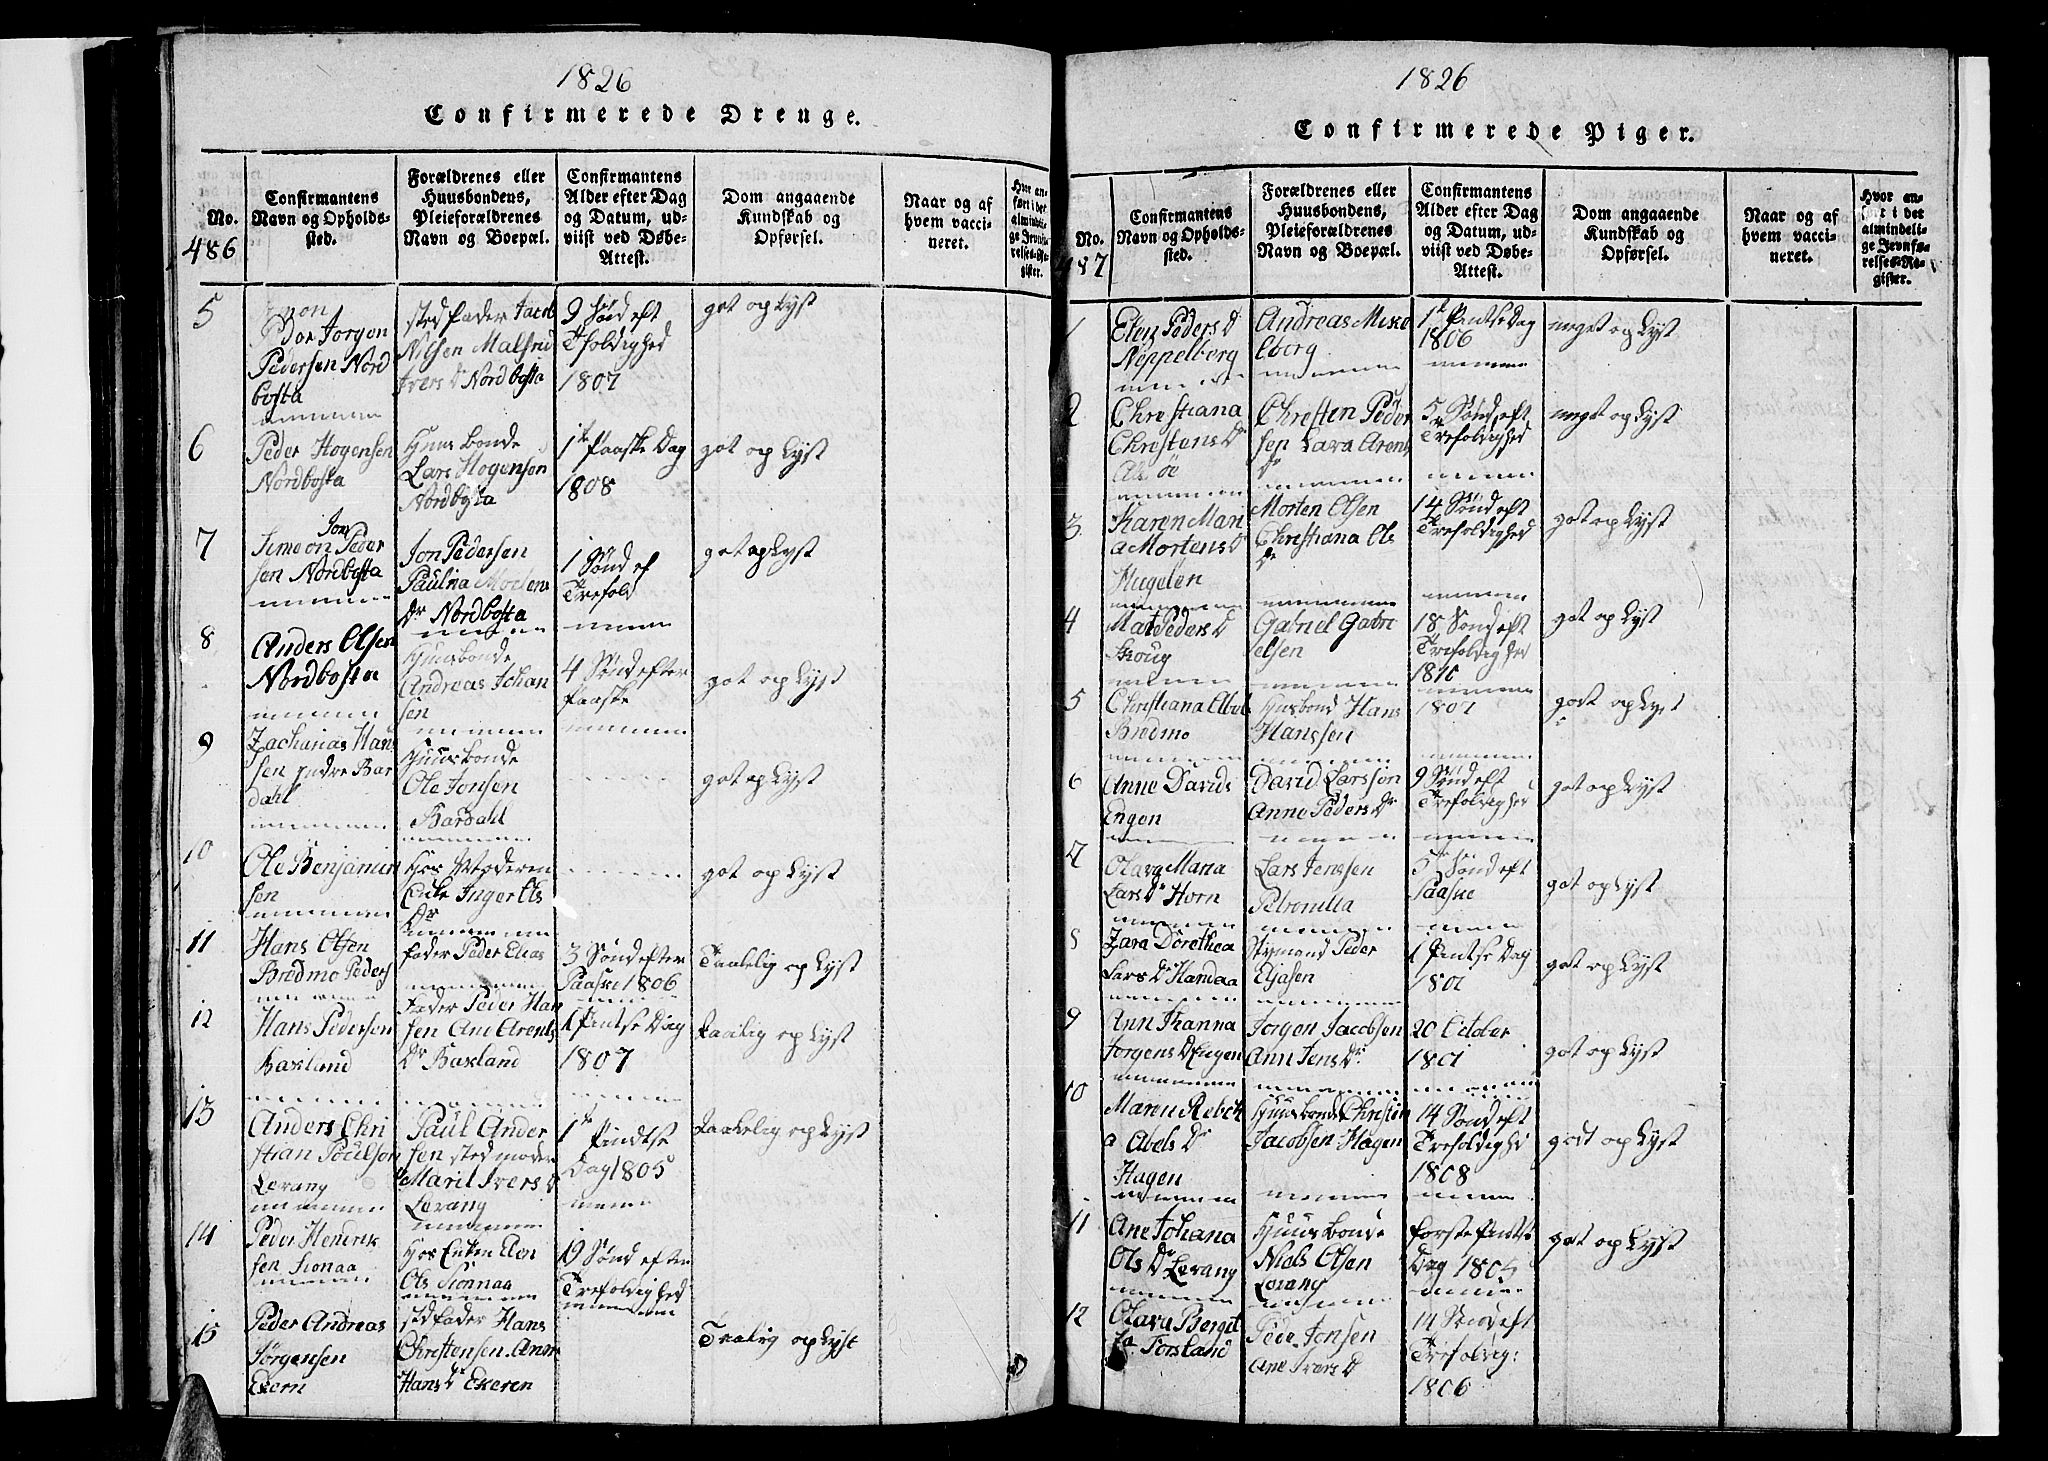 1826
Confirmerede Drenge.
No.
486
Confirmantens
Navn og Opholds-
sted.
Forældrenes eller
Huusbondens,
Pleieforældrenes
Navn og Boepæl.
Confirmantens
Alder efter Dag
og Datum, ud-
viist ved Døbe-
Attest.
Dom angaaende
Kundskab og
Opførsel.
Naar og af
hvem vacci-
neret.
Hvor an-
ført i det
almindeli-
ge Jevnfø-
relses-Re-
gister.
5
Jorgon
Pedersen Nord
bosta
sted fader Jacob
Nilsen Malfrid
Ivers Dr Nordbosta
9 Sönd eft
Trfoldighed
1807
got oplyst
6
Peder Hogensen
Nordbosta
Huusbonde
Lars Hogensen
Nordbosta
1te Paaske Dag
1808
got oplyst
7
Jon
Simeon Peder
sen Nordbosta
Jon Pedersen
Paulina Mortens
Dr Nordbosta
1 Sönd ef
Trefold
got oplyst
8
Anders Olsen
Nordbosta
Huusbonde
Andreas Johan
sen
4 Sönd efter
Paaske
got oplyst
9
Zacharias Hans
sen indre Bar
dahl
Huusbonde
Ole Jonsen
Bardahl
got oplyst
10
Ole Benjamin
sen
Hos Moderen
Enke Inger Ols
Dr
got oplyst
11
Hans Olsen
Bredmo Peders
fader Peder Elias
3 Sönd efter
Paaske 1806
Taalelig oplyst
12
Hans Pedersen
Baxland
Fader Peder Han
sen Ane Arents
Dr Baxland
1 Pintse Dag
1807
taalig oplyst
13
Anders Chri
stian Poulson
Levang
Paul Ander
sen sted moder
Marit Ivers D
Levang
1te Pindtse
Dag 1805
taalelig oplyst
14
Peder Hendrik
sen Sionaa
Hos Enken Elen
Ols Sionnaa
19 Sönd efter
Trefoldighed
15
Peder Andreas
Jörgensen
Ekern
sted fader Hans
Christensen. Ann
Hans Dr Ekeren
Taalig oplyst
1826
Confirmerede Piger.
No.
487
Confirmantens
Navn og Opholds-
sted.
Forældrenes eller
Huusbondens,
Pleieforældrenes
Navn og Boepæl.
Confirmantens
Alder efter Dag
og Datum, ud-
viist ved Døbe-
Attest.
Dom angaaende
Kundskab og
Opførsel.
Naar og af
hvem vacci-
neret.
Hvor an-
ført i det
almindeli-
ge Jevnfø-
relses-Re-
gister.
1
Elen Peders Dr
Neppelberg
Andreas
Eberg
1te Pintse Dag
1806
meget oplyst
2
Christiana
Christens Dr
Christen Peder
sen Lava Arents
Dr
5 Sönd eft
Trefoldighed
meget oplyst
3
Karen Mari
a Mortens Dr
Hugelen
Morten Olsen
Christiana Ols
Dr
14 Sönd eft
Trefoldighed
got oplyst
4
Mat Peders Dr
Skoug
Gabriel Gabri
elsen
18 Sönd eft
Trefoldighed
1810
got oplyst
5
Christiana
Bredmo
Husbond Hans
Hanssen
1807
godt oplyst
6
Anne Davids
Engen
David Larssön
Anne Peders Dr
9 Sönd eft
Trefoldighed
got oplyst
7
Olava Maria
Lars Dr Horn
Lars Jenssen
Petronilla
5te Sönd eft
Paaske
got oplyst
8
Zara Dorethea
Lars Dr Handaa
Styrmand Peder
Eljasen
1 Pintse Dag
1807
got oplyst
9
Ann Johanna
Jorgens Dr Engen
Jorgen Jacobsen
Ann Jens Dr
20 October
1807
got oplyst
10
Maren Rebek
a Abels Dr
Hagen
Huusbonde Christen
Jacobsen Hagen
14 Sönd eft
Trefoldighe
1808
godt oplyst
11
Ane Johana
Ols Dr Levang
Huusbonde
Niels Olsen
Levang
forste Pintse
Dag 1805
got oplyst
12
Olava Bergit
ta Forsland
Pede Jonsen
Ane Ivers Dr
14 Sönd eft
Trefoldig:
1806